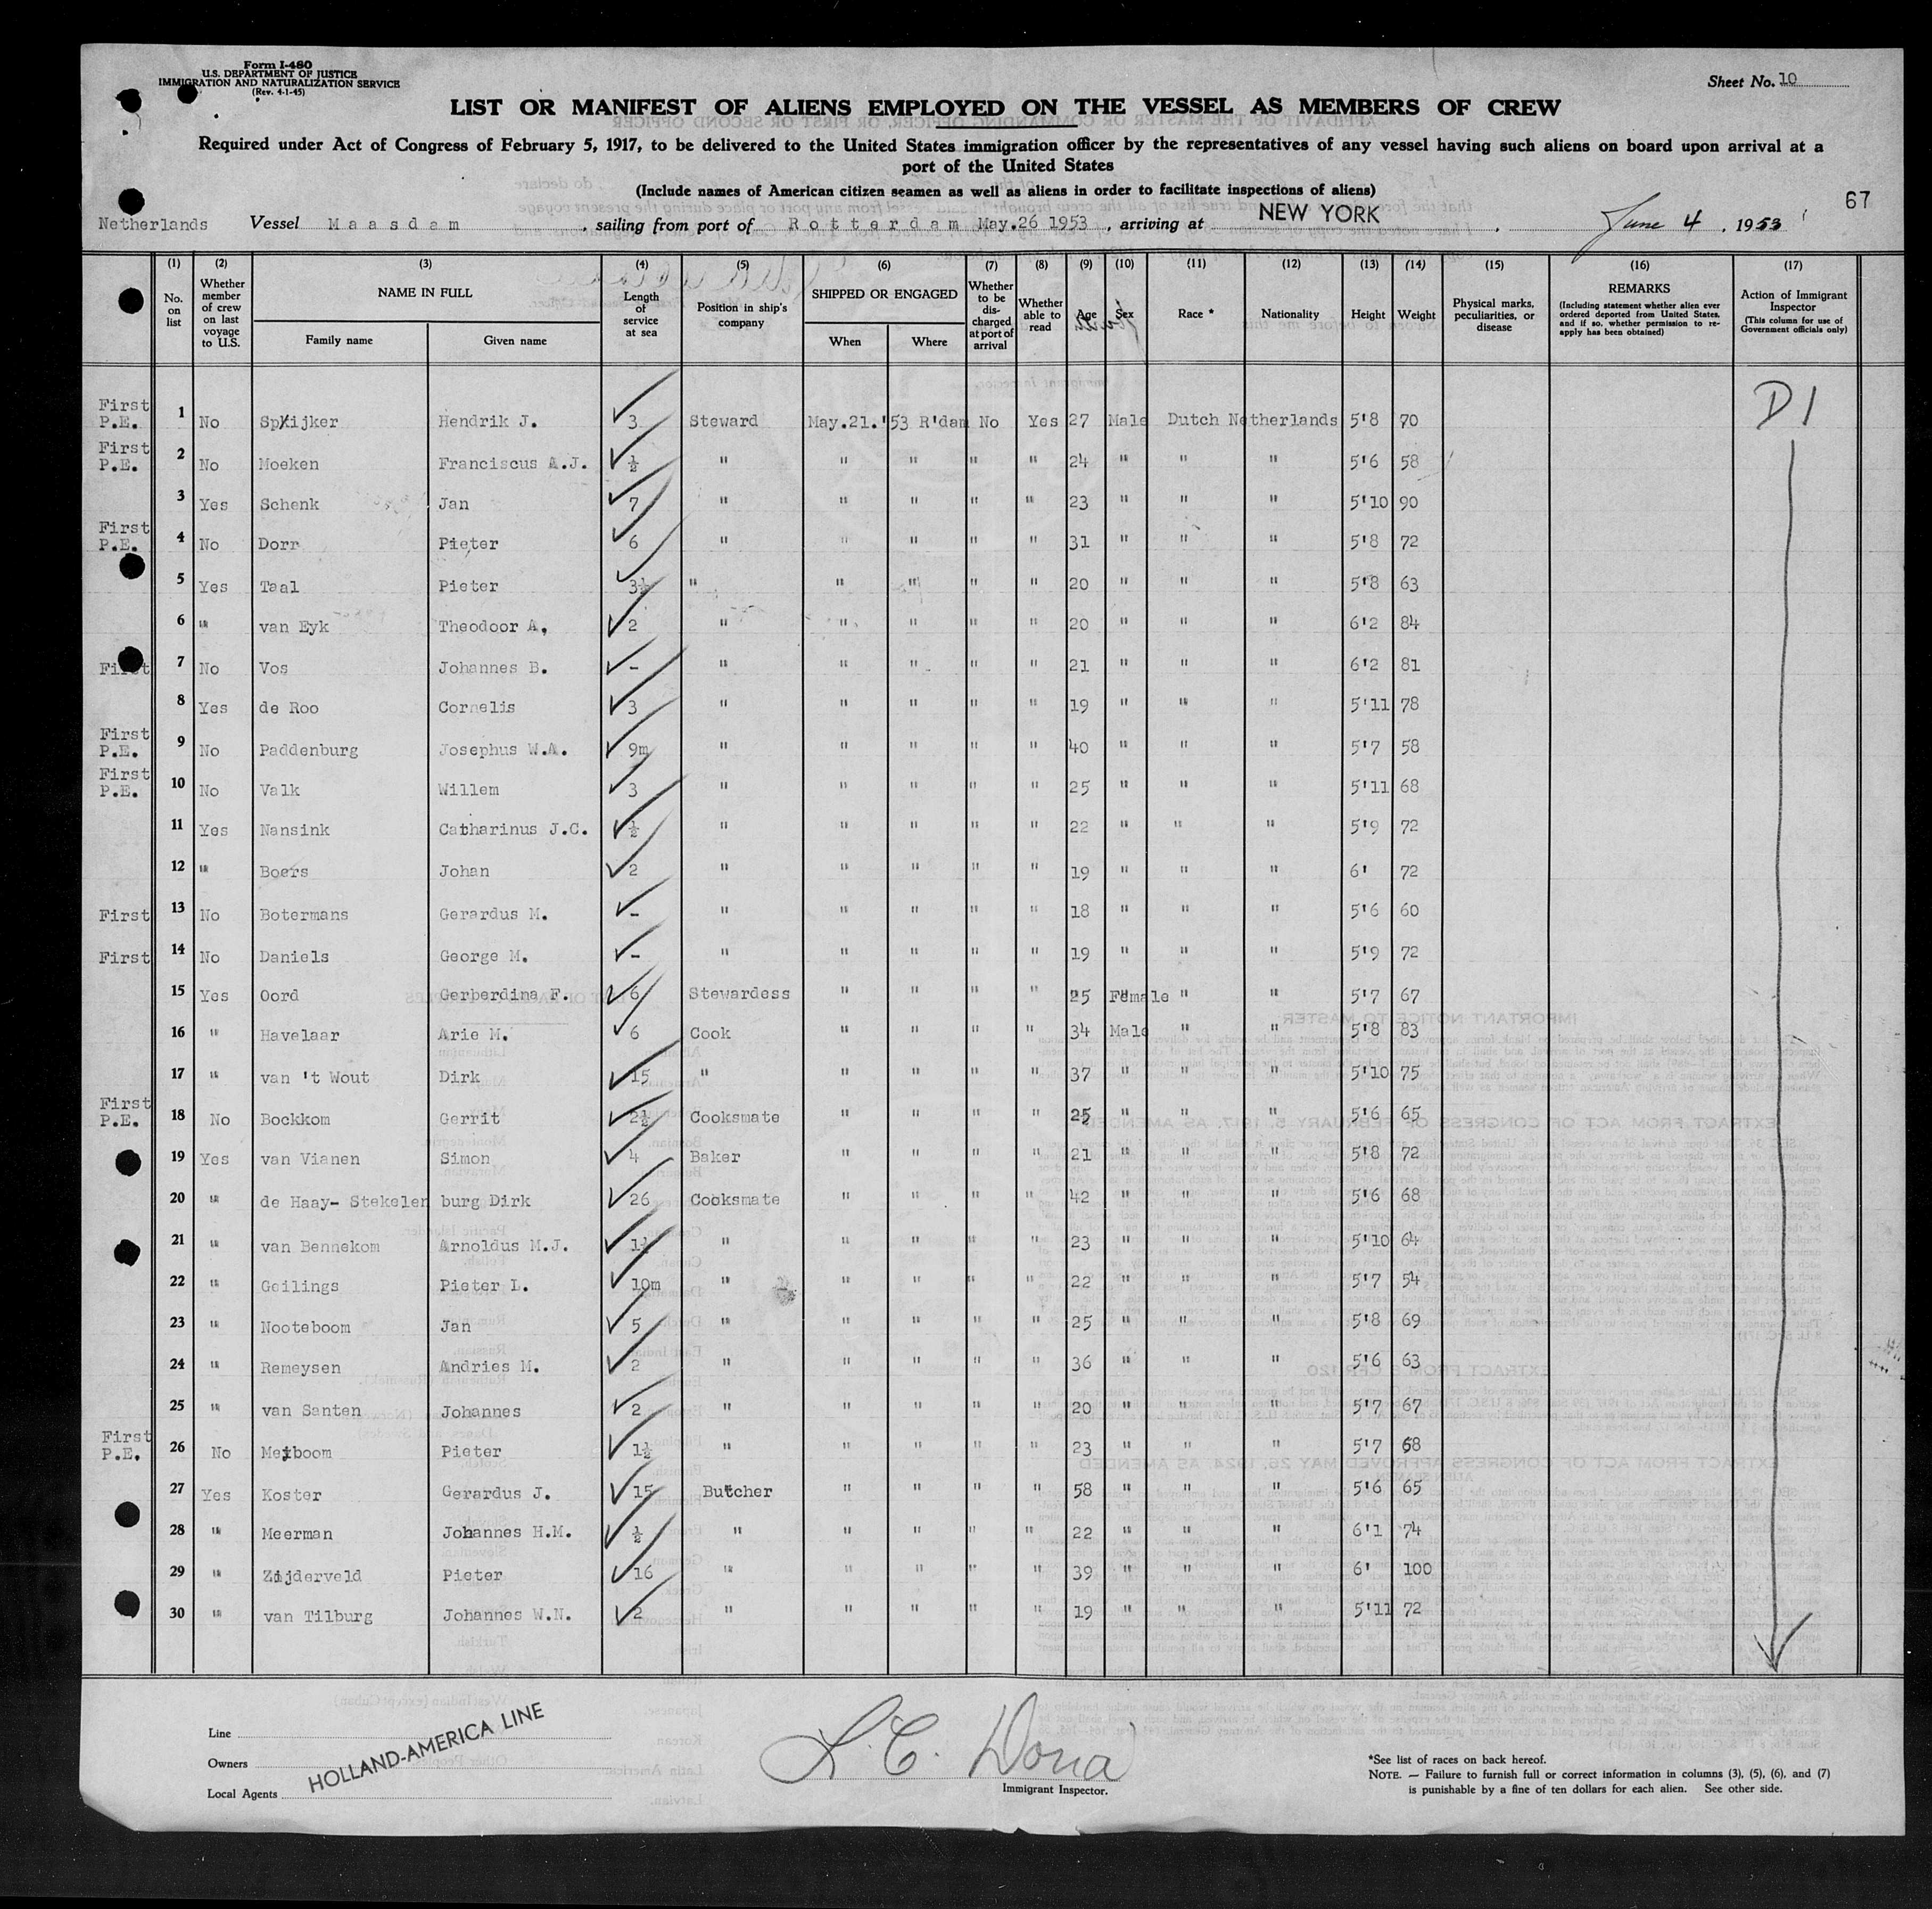 Form I-480
U.S. DEPARTMENT OF JUSTICE
IMMIGRATION AND NATURALIZATION SERVICE
(Rev. 4-1-45)
Sheet No. 10
LIST OR MANIFEST OF ALIENS EMPLOYED ON THE VESSEL AS MEMBERS OF CREW
Required under Act of Congress of February 5, 1917, to be delivered to the United States immigration officer by the representatives of any vessel having such aliens on board upon arrival at a
port of the United States
(Include names of American citizen seamen as well as aliens in order to facilitate inspections of aliens)
67
Netherlands Vessel Maasdam, sailing from port of Rotterdam May.26 1953, arriving at NEW YORK, June 4, 1953
(1) (2) (3) (4) (5) (6) (7) (8) (9) (10) (11) (12) (13) (14) (15) (16) (17)
No. on list
Whether member of crew on last voyage to U.S.
NAME IN FULL
Family name
Given name
Length of service at sea
Position in ship's company
SHIPPED OR ENGAGED
When
Where
Whether to be discharged at port of arrival
Whether able to read
Age
Sex
Race *
Nationality
Height
Weight
Physical marks, peculiarities, or disease
REMARKS
(Including statement whether alien ever ordered deported from United States, and if so, whether permission to reapply has been obtained)
Action of Immigrant Inspector
(This column for use of Government officials only)
D1
First P.E. 1 No Spijker Hendrik J. 3 Steward May.21.'53 R'dam No Yes 27 Male Dutch Netherlands 5'8 70
First P.E. 2 No Moeken Franciscus A.J. ½ " " " " " 24 " " " 5'6 58
3 Yes Schenk Jan 7 " " " " " 23 " " " 5'10 90
First P.E. 4 No Dorr Pieter 6 " " " " " 31 " " " 5'8 72
5 Yes Taal Pieter 3½ " " " " " 20 " " " 5'8 63
6 " van Eyk Theodoor A. 2 " " " " " 20 " " " 6'2 84
First 7 No Vos Johannes B. - " " " " " 21 " " " 6'2 81
8 Yes de Roo Cornelis 3 " " " " " 19 " " " 5'11 78
First P.E. 9 No Paddenburg Josephus W.A. 9m " " " " " 40 " " " 5'7 58
First P.E. 10 No Valk Willem 3 " " " " " 25 " " " 5'11 68
11 Yes Nansink Catharinus J.C. ½ " " " " " 22 " " " 5'9 72
12 " Boers Johan 2 " " " " " 19 " " " 6' 72
First 13 No Botermans Gerardus M. - " " " " " 18 " " " 5'6 60
First 14 No Daniels George M. - " " " " " 19 " " " 5'9 72
15 Yes Oord Gerberdina F. 6 Stewardess " " " " 25 Female " " 5'7 67
16 " Havelaar Arie M. 6 Cook " " " " 34 Male " " 5'8 83
17 " van 't Wout Dirk 15 " " " " " 37 " " " 5'10 75
First P.E. 18 No Bockkom Gerrit 2½ Cooksmate " " " " 25 " " " 5'6 65
19 Yes van Vianen Simon 4 Baker " " " " 21 " " " 5'8 72
20 " de Haay- Stekelenburg Dirk 26 Cooksmate " " " " 42 " " " 5'6 68
21 " van Bennekom Arnoldus M.J. 1½ " " " " " 23 " " " 5'10 64
22 " Geilings Pieter L. 10m " " " " " 22 " " " 5'7 54
23 " Nooteboom Jan 5 " " " " " 25 " " " 5'8 69
24 " Remeysen Andries M. 2 " " " " " 36 " " " 5'6 63
25 " van Santen Johannes 2 " " " " " 20 " " " 5'7 67
First P.E. 26 No Meiboom Pieter 1½ " " " " " 23 " " " 5'7 68
27 Yes Koster Gerardus J. 15 Butcher " " " " 58 " " " 5'6 65
28 " Meerman Johannes H.M. ½ " " " " " 22 " " " 6'1 74
29 " Zijderveld Pieter 16 " " " " " 39 " " " 6' 100
30 " van Tilburg Johannes W.N. 2 " " " " " 19 " " " 5'11 72
Line
Owners
Local Agents
HOLLAND-AMERICA LINE
L. C. Doria
Immigrant Inspector.
*See list of races on back hereof.
NOTE. — Failure to furnish full or correct information in columns (3), (5), (6), and (7)
is punishable by a fine of ten dollars for each alien. See other side.